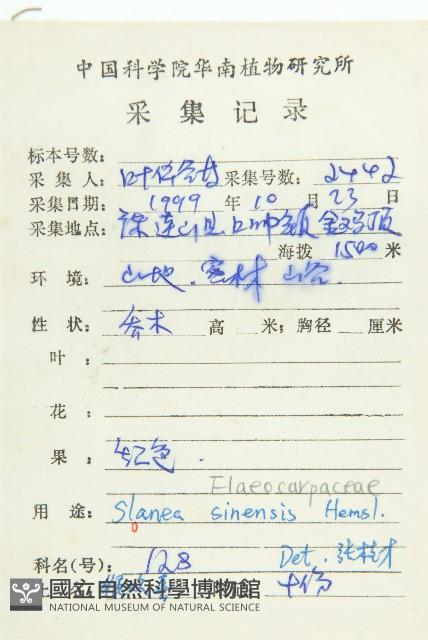 中国科学院华南植物研究所
采集记录
标本号数:
采集人: 叶华谷 采集号数: 2442
采集日期: 1999 年 10 月 23 日
采集地点: 连山县 金鸡顶
海拔 1500 米
环境: 山地. 密林 山谷.
性状: 乔木 高 米; 胸径 厘米
叶:
花:
果: 红色.
Elaeocarpaceae
用途: Slanea sinensis Hemsl.
o
科名(号): 128 Det. 张桂才
國立自然科學博物館
NATIONAL MUSEUM OF NATURAL SCIENCE